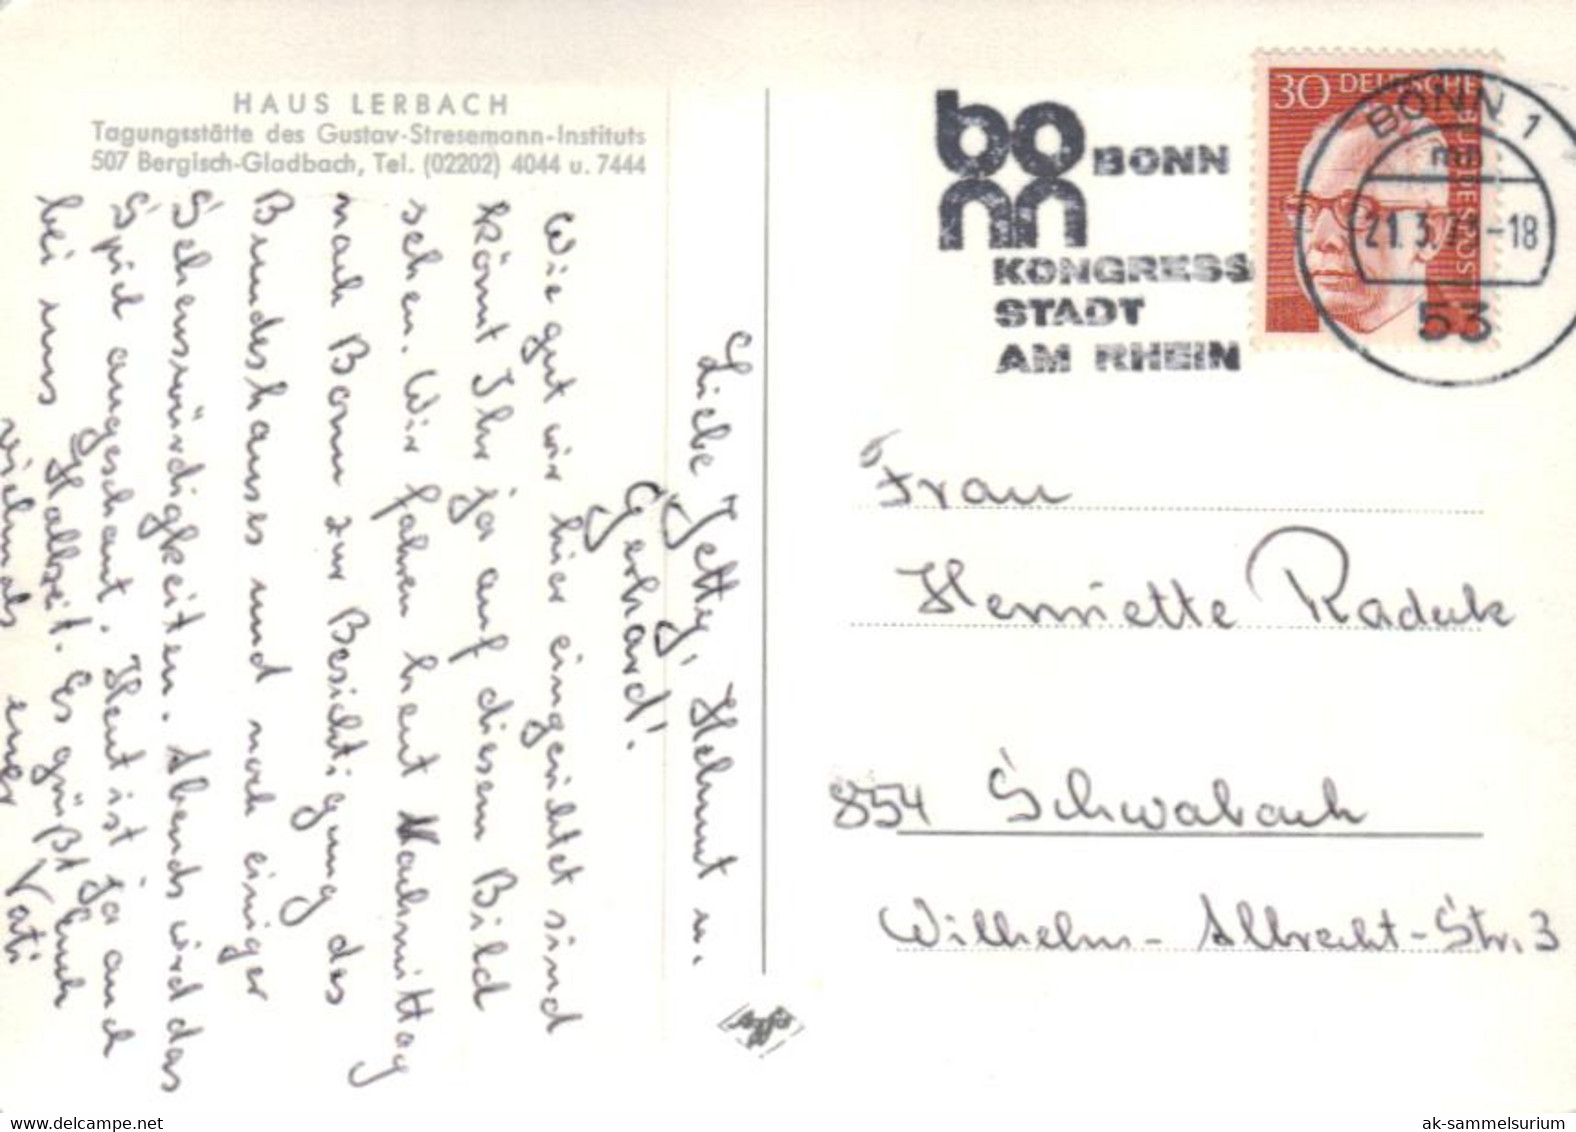 HAUS LERBACH
Tagungsstätte des Gustav-Stresemann-Instituts
507 Bergisch-Gladbach, Tel. (02202) 4044 u. 7444
Liebe Jetty, Helmut u.
Gerhard!
Wie gut wir hier eingerichtet sind
könnt Ihr ja auf diesem Bild
sehen. Wir fahren heut Nachmittag
nach Bonn zur Besichtigung des
Bundeshauses und noch einiger
Sehenswürdigkeiten. Abends wird das
Spiel angeschaut. Heut ist ja auch
bei uns Halbzeit. Es grüßt Euch
vielmals euer Vati
bo
nn
BONN
KONGRESS
STADT
AM RHEIN
30 DEUTSCHE
BUNDESPOST
BONN 1
mn
21.3.73-18
53
Frau
Henriette Raduk
854 Schwabach
Wilhelm-Albrecht-Str. 3
Agfa
ak-sammelsurium